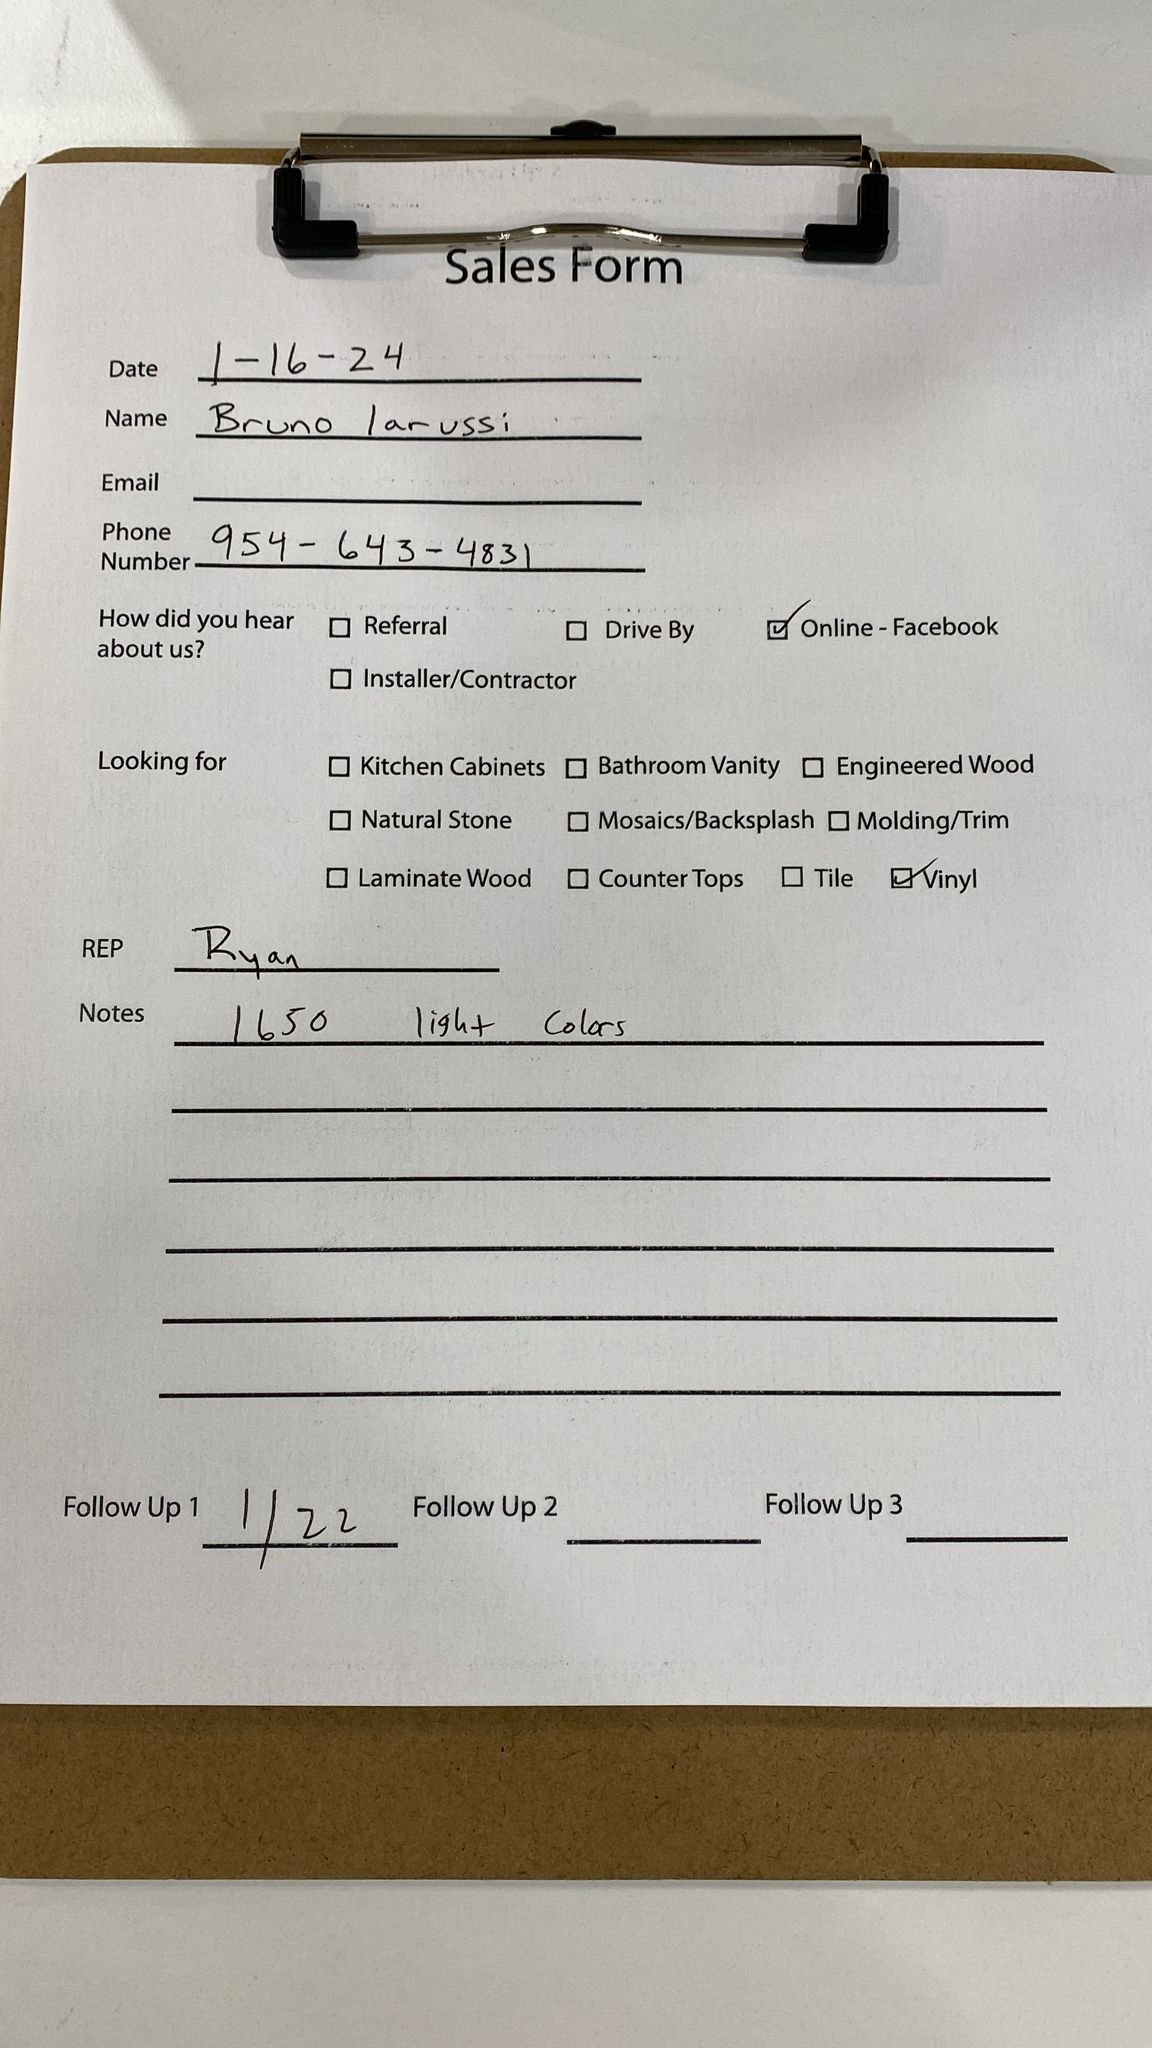 Sales Form
Date 1-16-24
Name Bruno Iarussi
Email
Phone
Number 954-643-4831
How did you hear about us? ☐ Referral ☐ Drive By ☑ Online - Facebook
☐ Installer/Contractor
Looking for ☐ Kitchen Cabinets ☐ Bathroom Vanity ☐ Engineered Wood
☐ Natural Stone ☐ Mosaics/Backsplash ☐ Molding/Trim
☐ Laminate Wood ☐ Counter Tops ☐ Tile ☑ Vinyl
REP Ryan
Notes 1650 light Colors
Follow Up 1 1/22 Follow Up 2 Follow Up 3